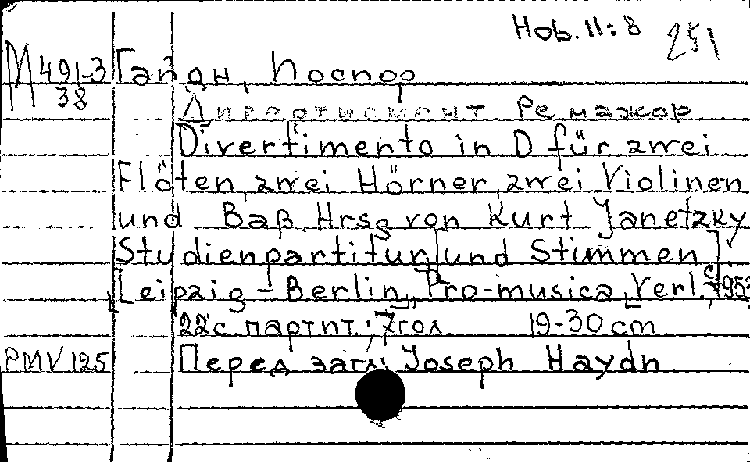 Hob. II:8
251
М 491-3 Гайдн, Йосиф
38
Дивертисмент Ре мажор
Divertimento in D für zwei
Flöten, zwei Hörner, zwei Violinen
und Baß. Hrsg von Kurt Janetzky
Studienpartitur [und Stimmen]
[Leipzig - Berlin], Pro-musica Verl., c 195
22с партит.; 7 гол. 19-30 cm
PMV 125 Перед загл. Joseph Haydn